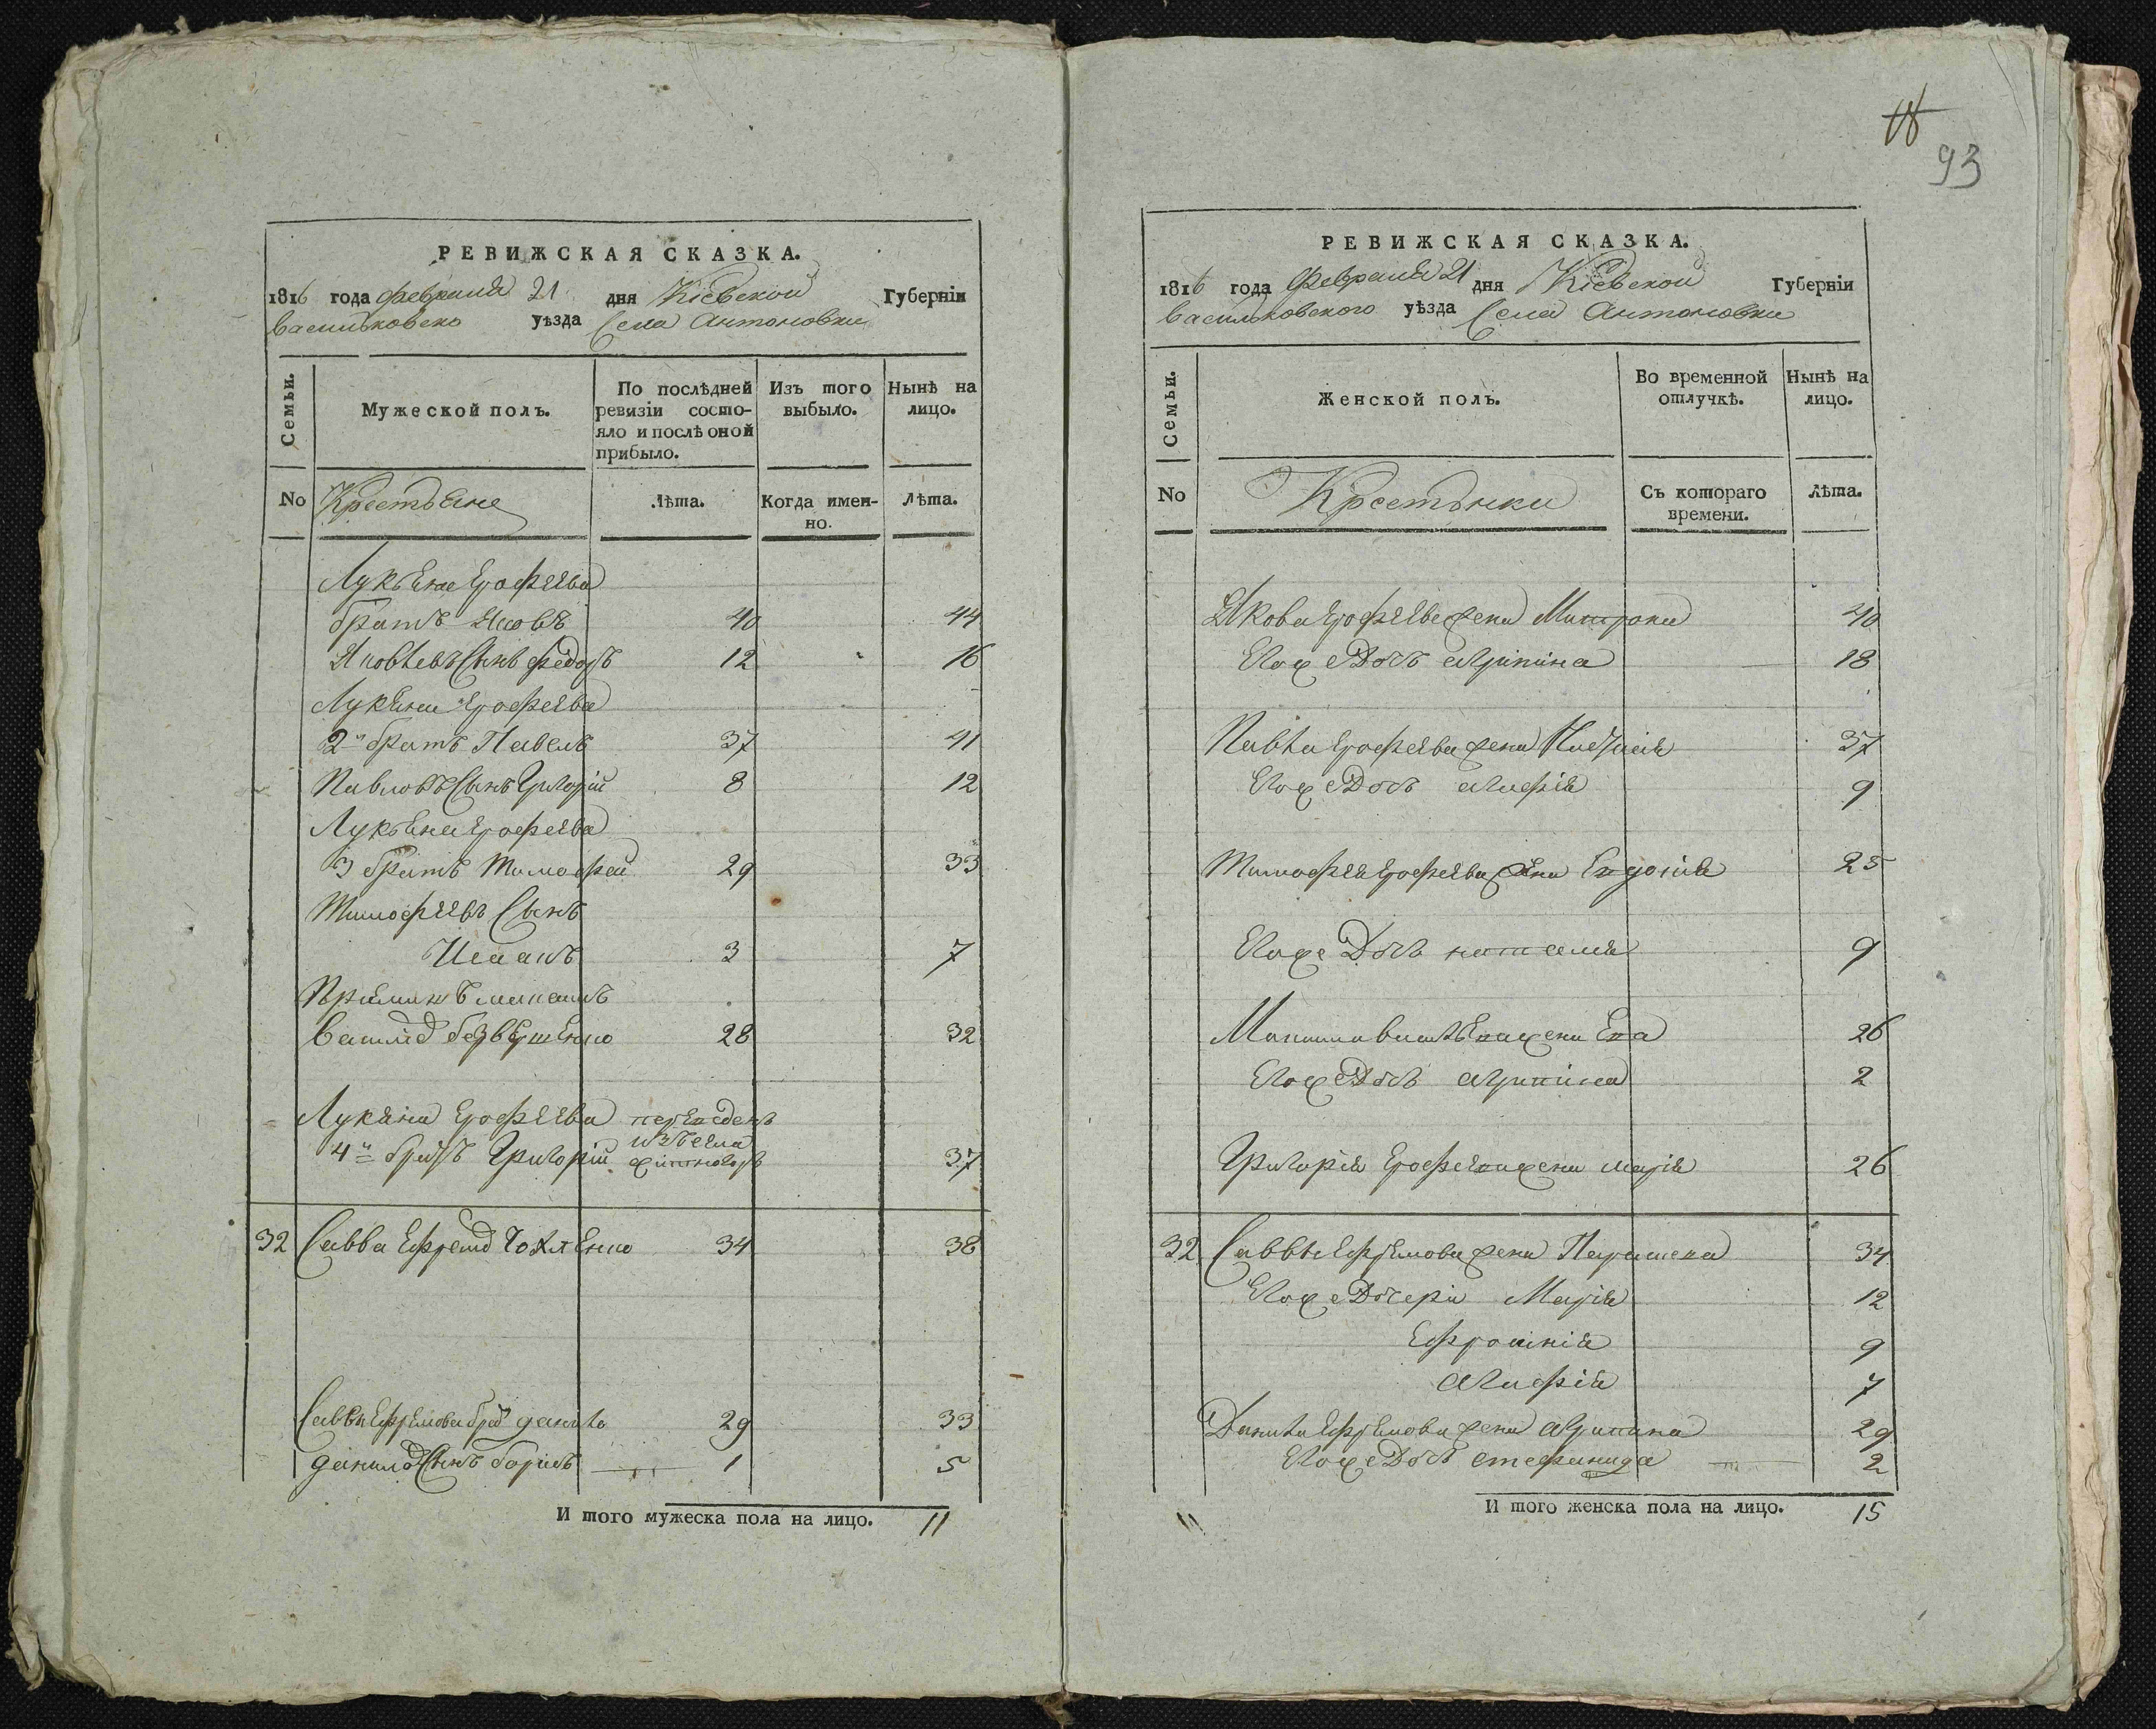 РЕВИЖСКАЯ СКАЗКА.
1816 года февраля 21 дня Кіевской Губерніи
Васильковско уѣзда Села Антоновки
Семьи.
Мужеской полъ.
По послѣдней ревизіи состояло и послѣ оной прибыло.
Изъ того выбыло.
Нынѣ на лицо.
No Крестьяне Лѣта. Когда именно. Лѣта.
Лукьяна Ерофеева
братъ Яковъ 40 44
Яковлевъ Сынъ федоръ 12 16
Лукяна Ерофеева
2й братъ Павелъ 37 41
Павловъ Сынъ Григорій 8 12
Лукьяна Ерофеева
3 братъ Тимофей 29 33
Тимофеевъ Сынъ
3 7
28 32
Лукяна Ерофеева переведенъ
4й братъ Григорій изъ села 37
32 Савва Ефремо 34 38
Саввы Ефремова бра данило 29 33
данило Сынъ борисъ 1 5
И того мужеска пола на лицо. 11
18
93
РЕВИЖСКАЯ СКАЗКА.
1816 года февраля 21 дня Кіевской Губерніи
Васильковского уѣзда Села Антоновки
Семьи.
Женской полъ.
Во временной отлучкѣ.
Нынѣ на лицо.
No Крестянки Съ котораго времени. Лѣта.
Якова Ерофеева жена Матрона 40
Егоже Дочь Агрипина 18
Павла Ерофеева жена 37
Егоже Дочь Агафія 9
Тимофея Ерофеева жена Евдокия 25
Егоже Дочь наталия 9
жена Ева 26
Егоже Дочь Агрипина 2
Григорія Ерофеева жена марія 26
32 Саввы Ефремова жена Параскева 34
Егоже Дочери Марія 12
Ефросинія 9
Агафія 7
Данила Ефремова жена Агрипина 29
Егоже Дочь стефанида 2
И того женска пола на лицо. 15